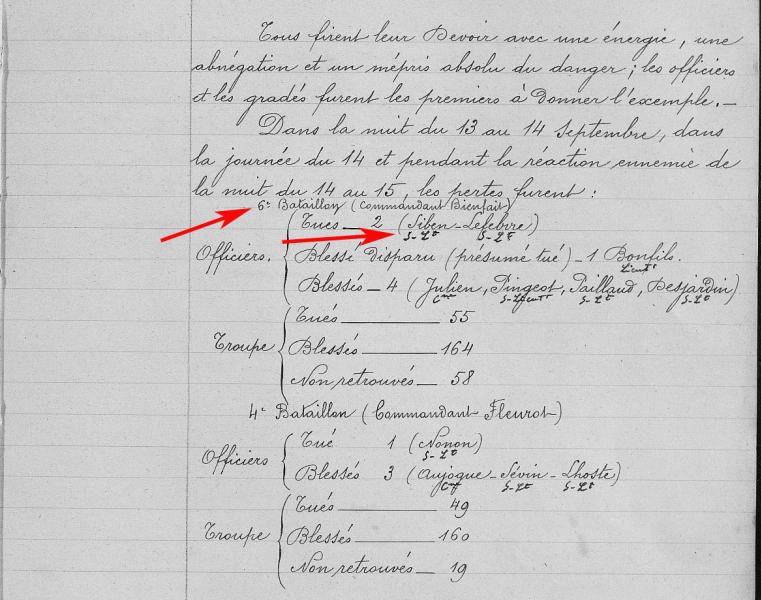 Tous firent leur Devoir avec une énergie, une
abnégation et un mépris absolu du danger ; les officiers
et les gradés furent les premiers à donner l'exemple. —
Dans la nuit du 13 au 14 Septembre, dans
la journée du 14 et pendant la réaction ennemie de
la nuit du 14 au 15, les pertes furent :
6e Bataillon (Commandant Bienfait)
Officiers.
Tués — 2 (Siben - Lefebvre)
S-Lt S-Lt
Blessé disparu (présumé tué) - 1 Bonfils.
Lieutt
Blessés — 4 (Julien, Pingeot, Paillaud, Desjardin)
Cne S-Lieutt S-Lt S-Lt
Troupe
Tués — 55
Blessés — 164
Non retrouvés — 58
4e Bataillon (Commandant Fleurot)
Officiers
Tué 1 (Nonon)
S-Lt
Blessés 3 (Aujogue - Sévin - Lhoste)
S-Lt S-Lt
Troupe
Tués — 49
Blessés — 160
Non retrouvés — 19